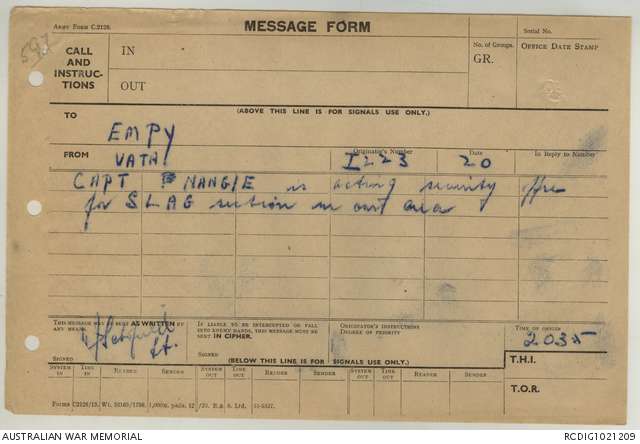 Army Form C.2128.
MESSAGE FORM
Serial No.
597
CALL AND INSTRUC-TIONS
IN
OUT
No. of Groups.
GR.
OFFICE DATE STAMP
(ABOVE THIS LINE IS FOR SIGNALS USE ONLY.)
TO
EMPY
FROM
VATA
Originator's Number
I223
Date
20
In Reply to Number
CAPT NANGLE is acting security
for SLAG section in our area
THIS MESSAGE MAY BE SENT AS WRITTEN BY ANY MEANS.
Lt.
SIGNED
IF LIABLE TO BE INTERCEPTED OR FALL INTO ENEMY HANDS, THIS MESSAGE MUST BE SENT IN CIPHER.
SIGNED
ORIGINATOR'S INSTRUCTIONS DEGREE OF PRIORITY
TIME OF ORIGIN
2035
(BELOW THIS LINE IS FOR SIGNALS USE ONLY.)
T.H.I.
T.O.R.
SYSTEM IN
TIME IN
READER
SENDER
SYSTEM OUT
TIME OUT
READER
SENDER
SYSTEM OUT
TIME OUT
READER
SENDER
Forms C2128/13.
51-5327.
AUSTRALIAN WAR MEMORIAL
RCDIG1021209